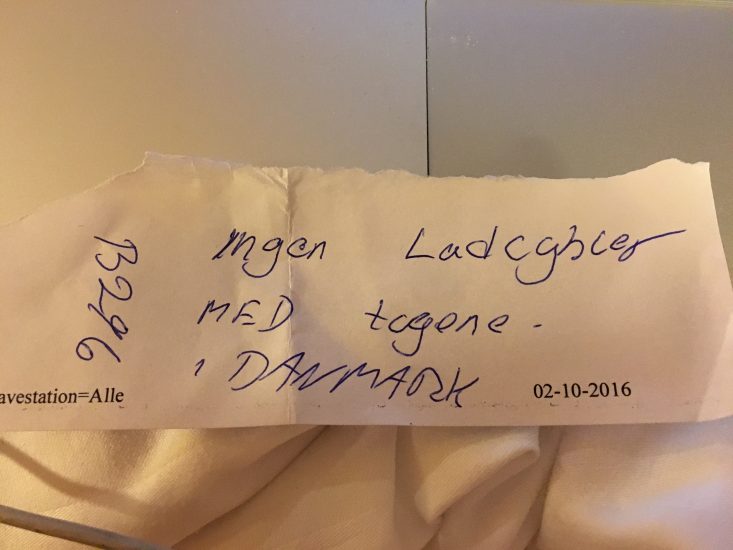 Ingen Ladcyhler
MED togene.
i DANMARK
B296
avestation=Alle
02-10-2016